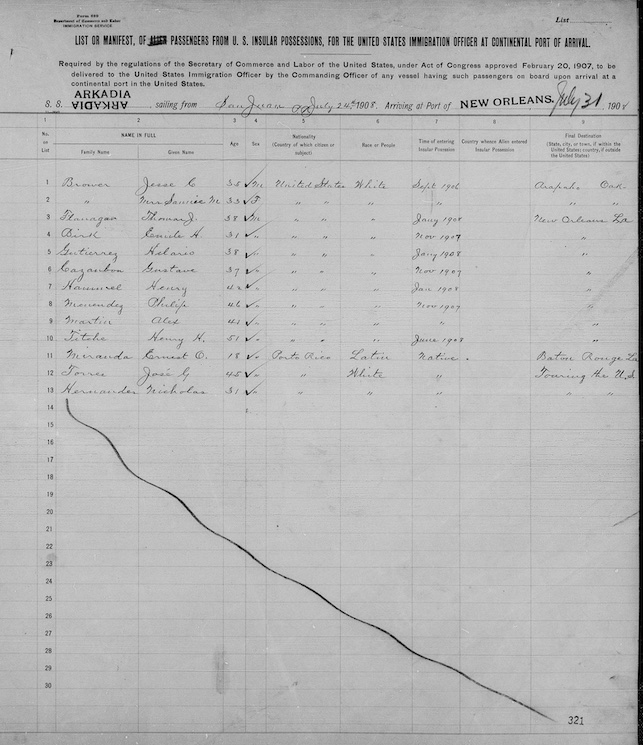 Form 630
Department of Commerce and Labor
IMMIGRATION SERVICE
List
LIST OR MANIFEST, OF ALIEN PASSENGERS FROM U. S. INSULAR POSSESSIONS, FOR THE UNITED STATES IMMIGRATION OFFICER AT CONTINENTAL PORT OF ARRIVAL.
Required by the regulations of the Secretary of Commerce and Labor of the United States, under Act of Congress approved February 20, 1907, to be
delivered to the United States Immigration Officer by the Commanding Officer of any vessel having such passengers on board upon arrival at a
continental port in the United States.
S. S. ARKADIA ARKADIA, sailing from San Juan July 24th 1908. Arriving at Port of NEW ORLEANS. July 31, 190
1 2 3 4 5 6 7 8 9
No. on List NAME IN FULL Family Name Given Name Age Sex Nationality (Country of which citizen or subject) Race or People Time of entering Insular Possession Country whence Alien entered Insular Possession Final Destination (State, city, or town, if within the United States; country, if outside the United States)
1 Brower Jesse C. 35 M United States White Sept 1906 Arapaho Oak.
2 " Mrs M. 33 F " " " " " " "
3 Flanagan Thomas J. 38 M " " " Jany 1908 New Orleans La
4 Birk H. 31 " " " " Nov 1907 "
5 Gutierrez Helario 38 " " " " Jany 1908 "
6 Cazanbon Gustave 37 " " " " Nov 1907 "
7 Hammel Henry 42 " " " " Jan 1908 "
8 Menendez Philip 46 " " " " Nov 1907 "
9 Martin Alex 41 " " " " " "
10 Titche Henry H. 51 " " " " June 1908 "
11 Miranda Ernest O. 18 " Porto Rico Latin Native. Baton Rouge La
12 Torres José G 45 " " White " Touring the U.S
13 Hernandez Nicholas 31 " " " " " "
14
15
16
17
18
19
20
21
22
23
24
25
26
27
28
29
30
321